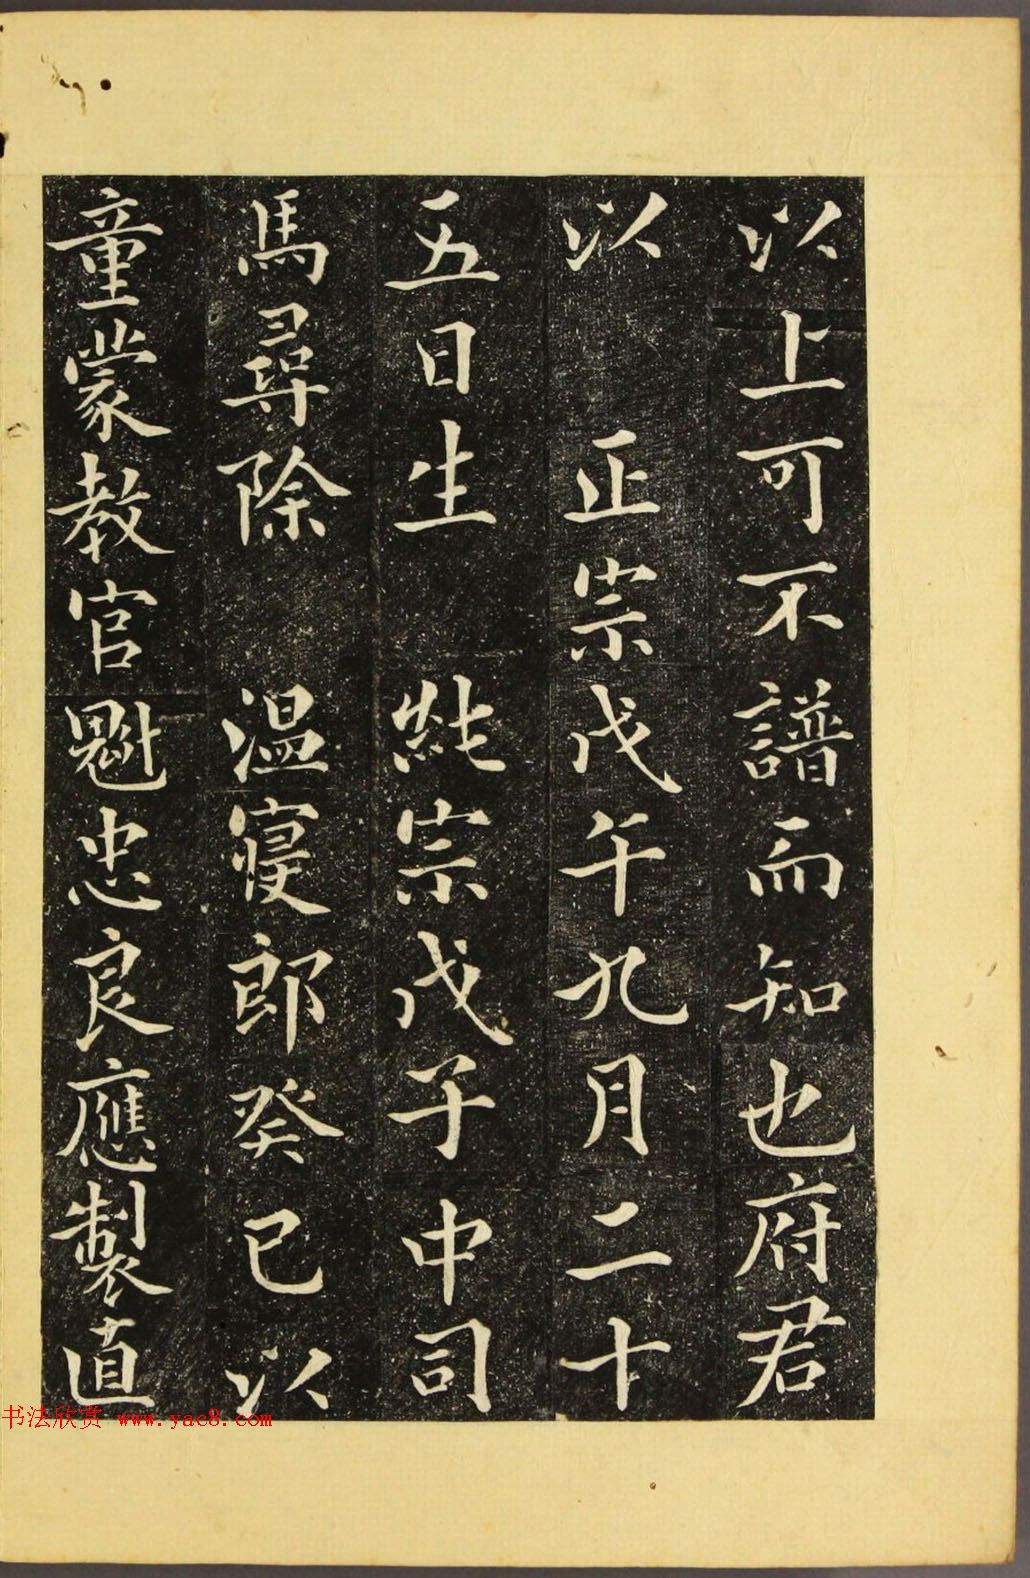 以上可不譜而知也府君
以 正宗戊午九月二十
五日生 純宗戊子中司
馬尋除 溫寑郎癸巳以
童蒙教官魁忠良應製直
书法欣赏 www.yac8.com